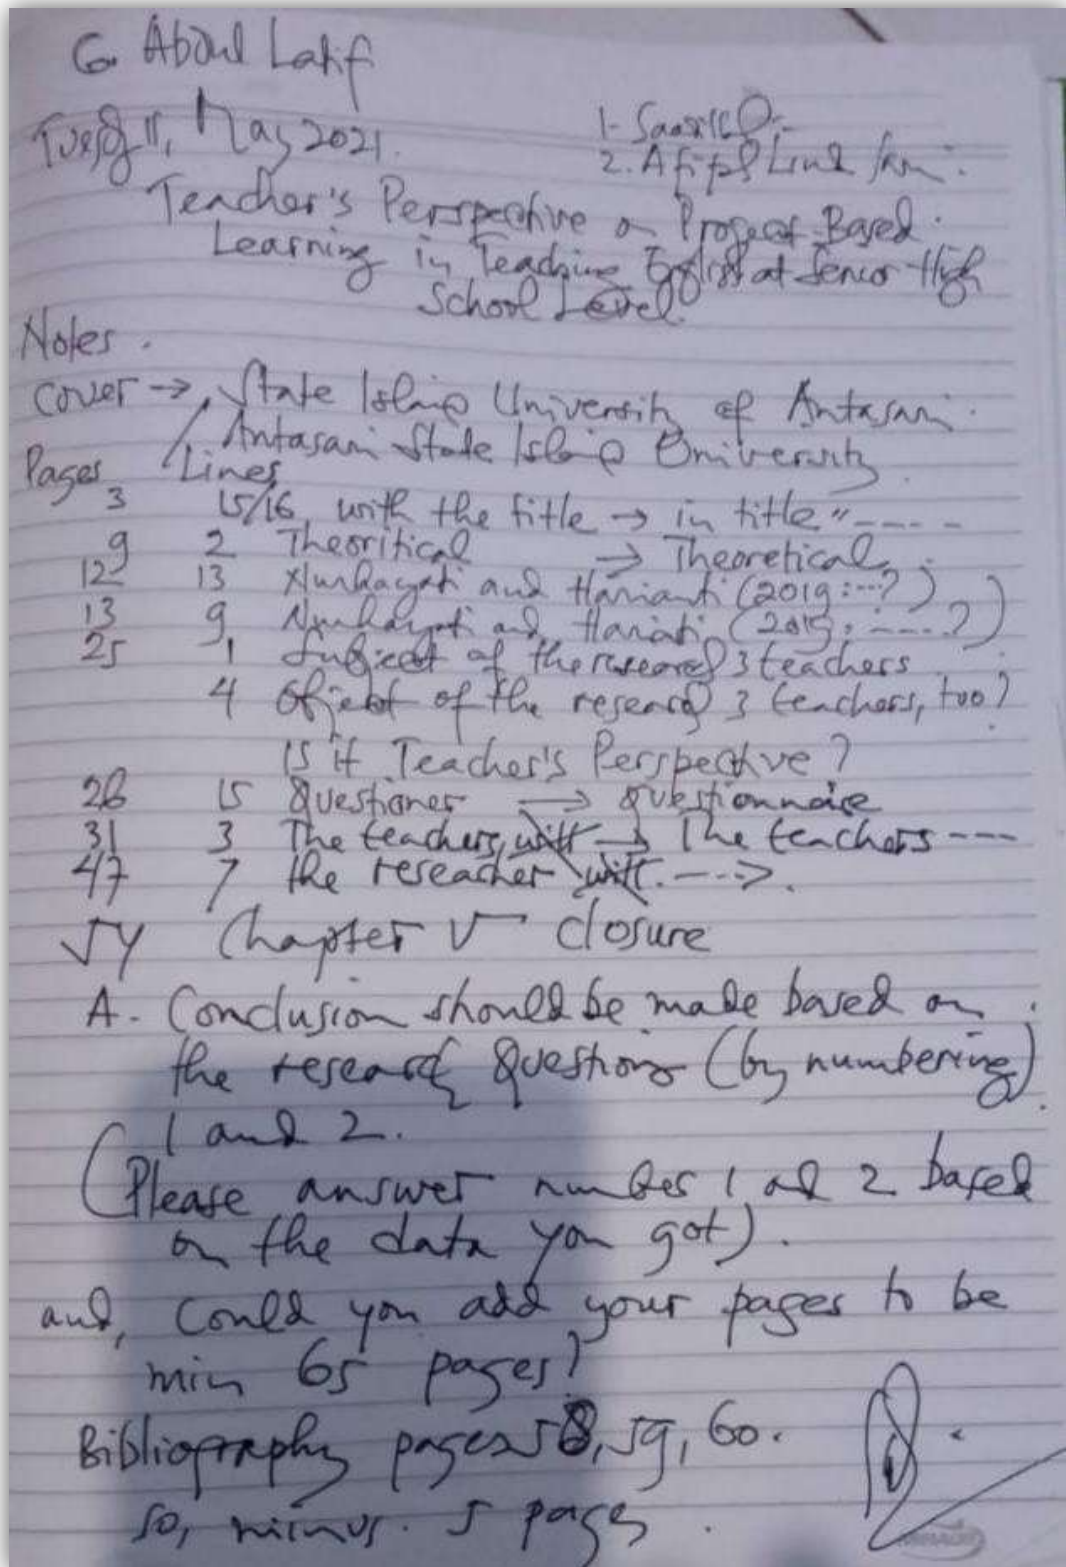 G. Abdul Latif
Tuesday 11, May 2021.
1-
2. A
Teacher's Perspective on Project Based
Learning in Teaching English at Senior High
School Level.
Notes.
Cover → State Islamic University of Antasari
/ Antasari State Islamic University
Pages Lines
3 15/16 with the title → in title "----
9 2 Theoritical → Theoretical
12 13 Nurhayati and Harianti (2019:---?)
13 9 Nurhayati and Harianti (2019: ----?)
25 1 Subject of the research 3 teachers
4 Object of the research 3 teachers, too?
Is it Teacher's Perspective?
26 15 Questioner → Questionnaire
31 3 The teachers will → The teachers ---
47 7 the reseacher will. --->.
54 Chapter V closure
A. Conclusion should be made based on
the research Questions (by numbering)
1 and 2.
(Please answer number 1 and 2 based
on the data you got).
and, Could you add your pages to be
min 65 pages?
Bibliography pages 58, 59, 60.
so, minus 5 pages.